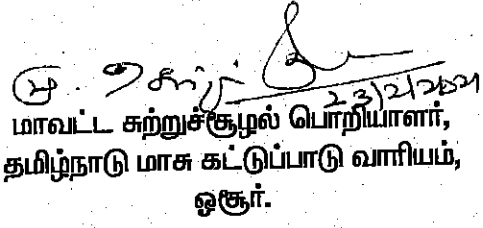 23/2/2021
மாவட்ட சுற்றுச்சூழல் பொறியாளர்,
தமிழ்நாடு மாசு கட்டுப்பாடு வாரியம்,
ஒசூர்.